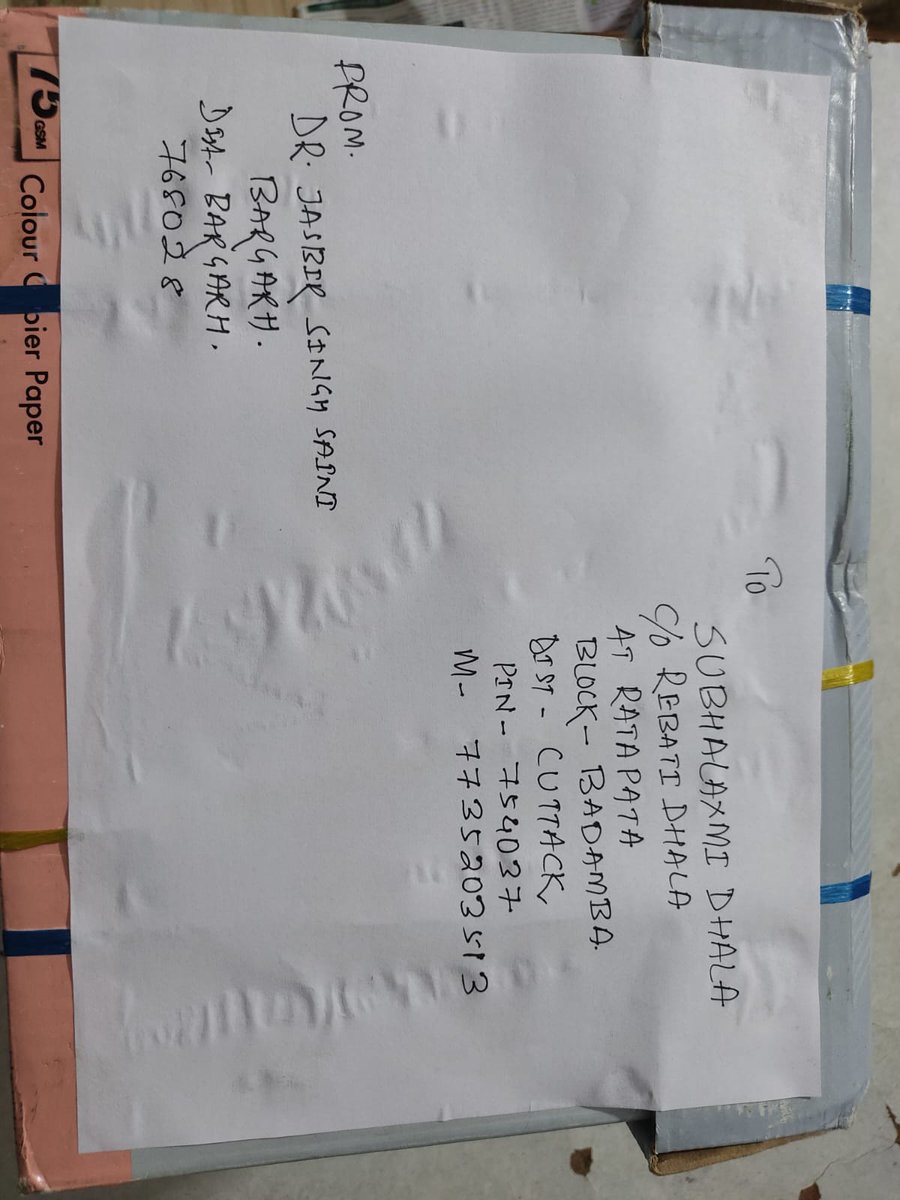 To
SUBHALAXMI DHALA
C/O REBATI DHALA
AT RATAPATA
BLOCK - BADAMBA.
DIST - CUTTACK,
PIN - 754037
M - 7735203513
FROM.
DR. JASBIR SINGH SAINI
BARGARH.
DIST - BARGARH.
768028
75 GSM
Colour Copier Paper